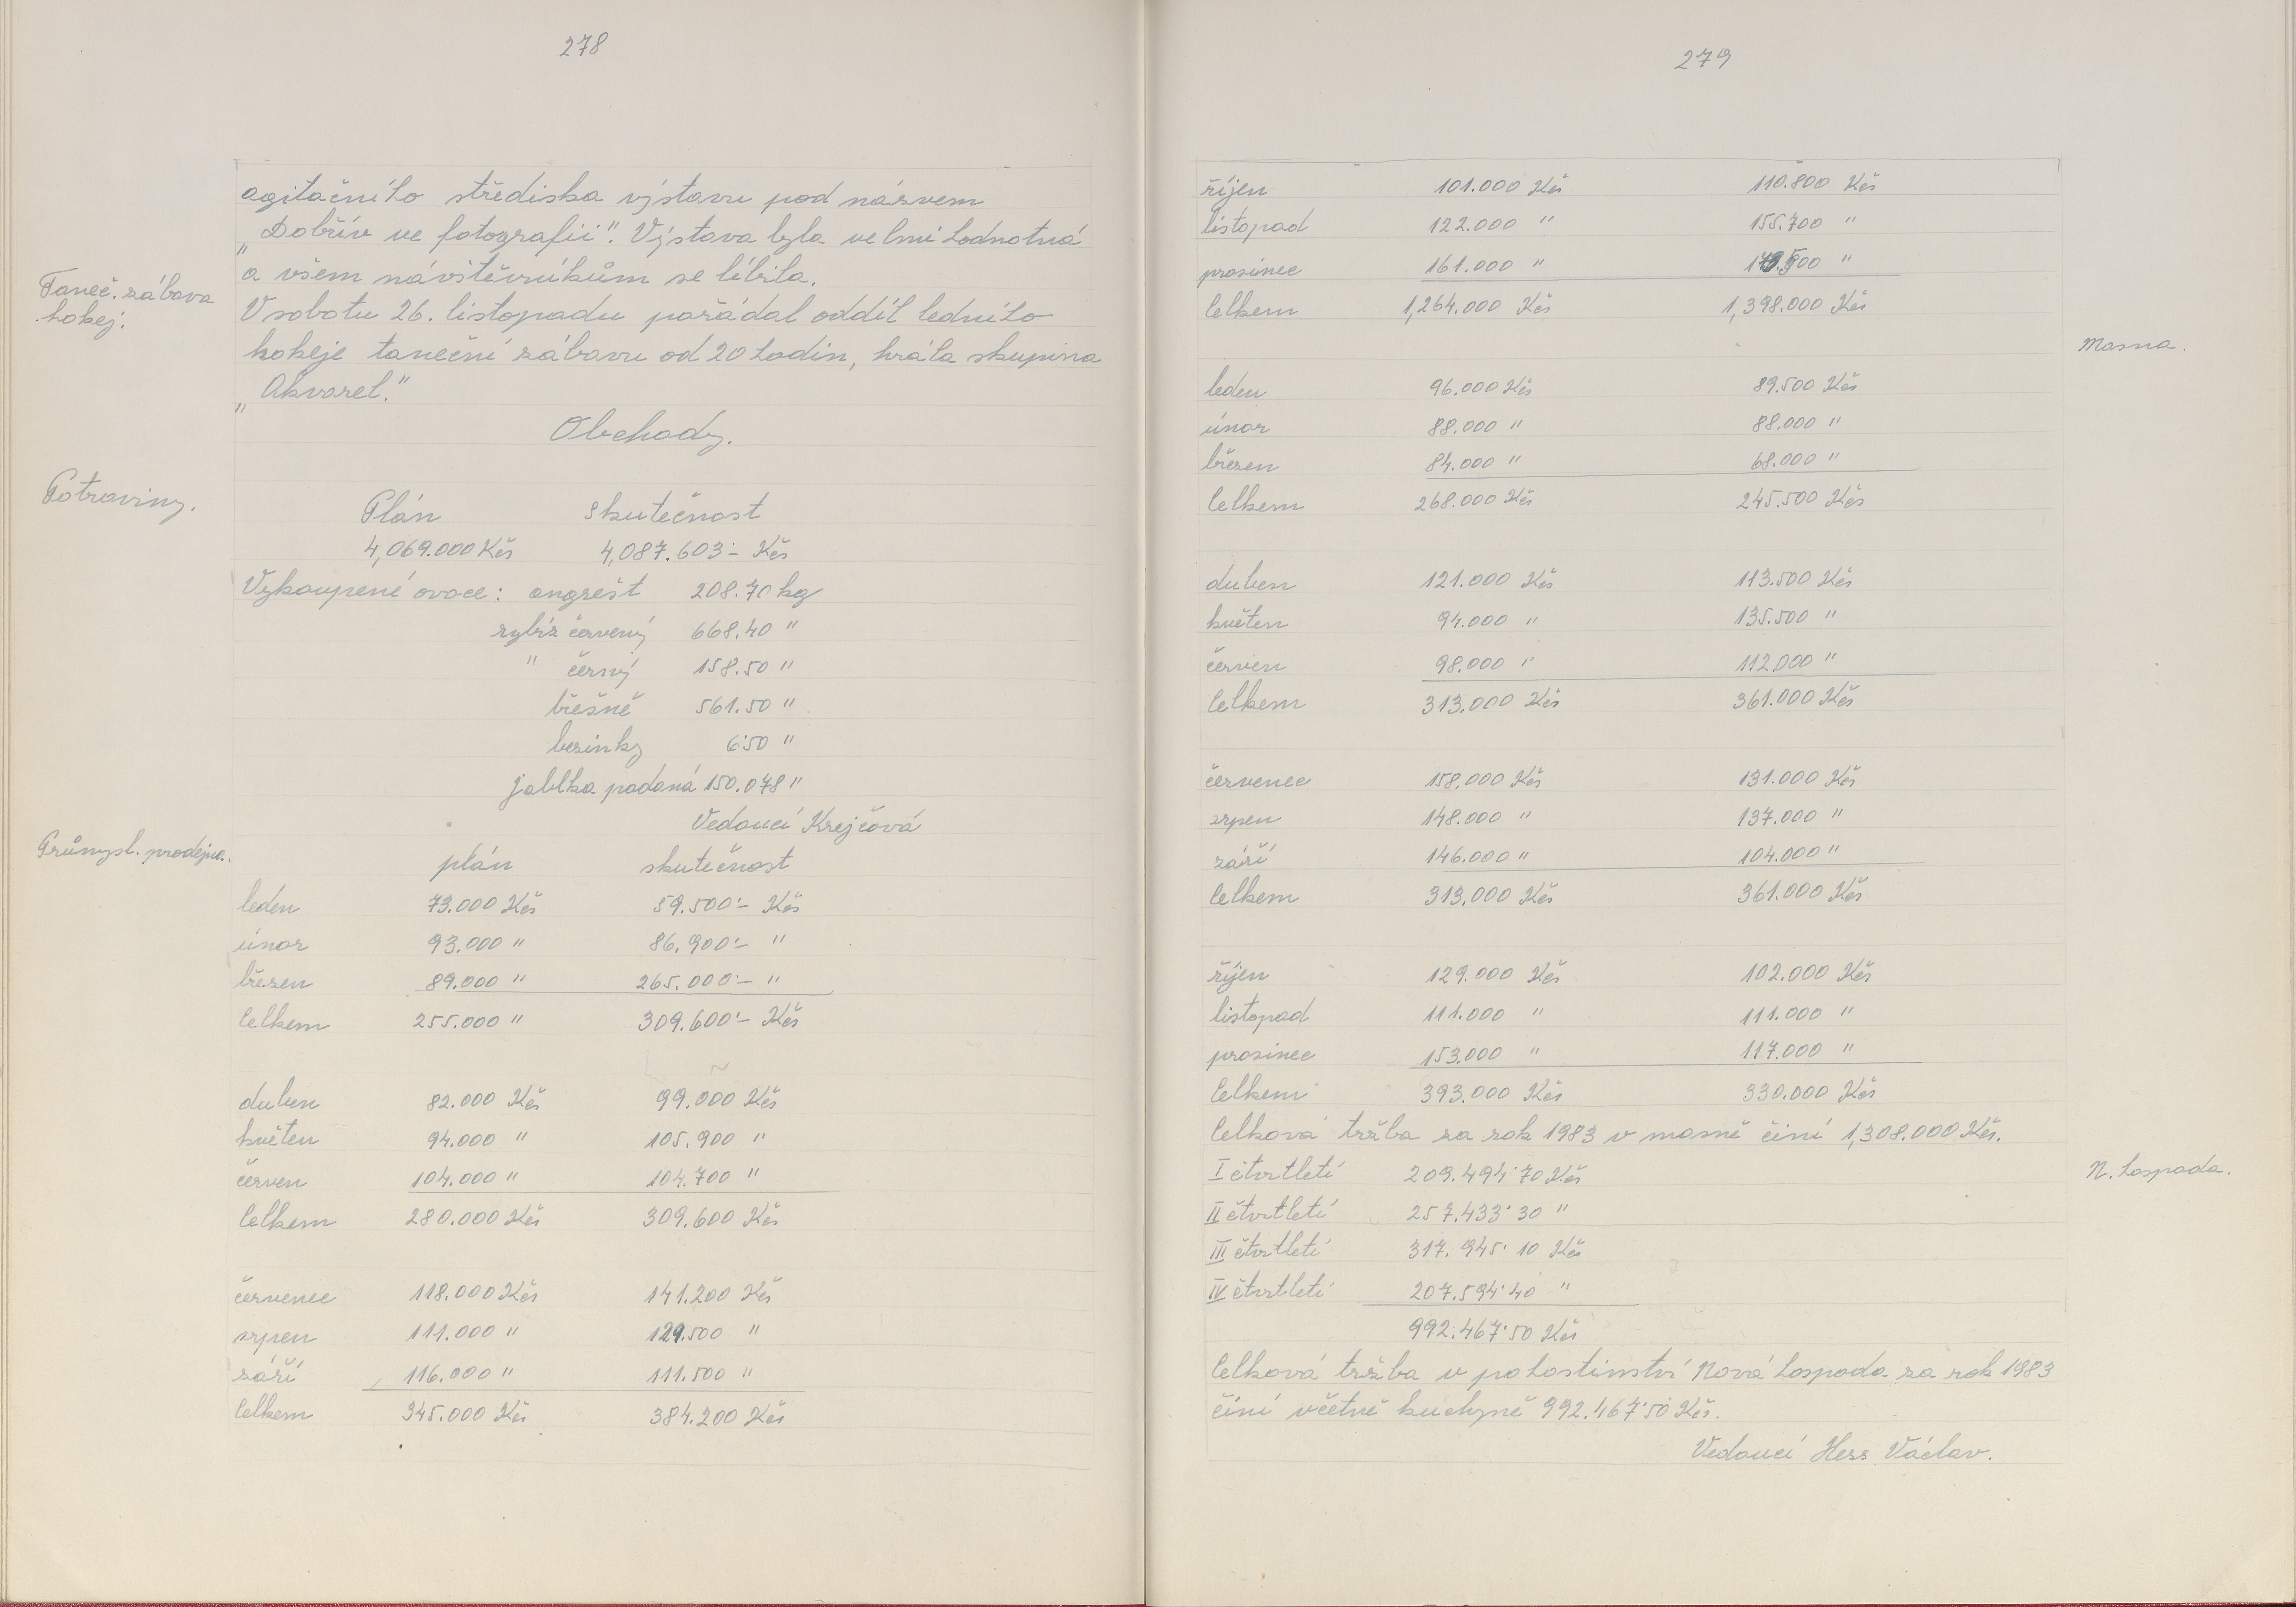 278
agitačního střediska výstavu pod názvem
„Dobřív ve fotografii". Výstava byla velmi hodnotná
a všem návštěvníkům se líbila.
Taneč. zábava
hokej.
V sobotu 26. listopadu pořádal oddíl ledního
hokeje taneční zábavu od 20 hodin, hrála skupina
„Akvarel."
Obchody.
Potraviny.
Plán skutečnost
4,069.000 Kčs 4,087.603·- Kčs
Vykoupené ovoce: angrešt 208.70 kg
rybíz červený 668.40 "
" černý 158.50 "
třešně 561.50 "
bezinky 6·50 "
jablka padaná 150.078 "
Vedoucí Krejčová
Průmysl. prodejna.
plán skutečnost
leden 73.000 Kčs 59.500·- Kčs
únor 93.000 " 86.900·- "
březen 89.000 " 265.000·- "
Celkem 255.000 " 309.600·- Kčs
duben 82.000 Kčs 99.000 Kčs
květen 94.000 " 105.900 "
červen 104.000 " 104.700 "
Celkem 280.000 Kčs 309.600 Kčs
červenec 118.000 Kčs 141.200 Kčs
srpen 111.000 " 129.500 "
září 116.000 " 111.500 "
Celkem 345.000 Kčs 384.200 Kčs
279
říjen 101.000 Kčs 110.800 Kčs
listopad 122.000 " 155.700 "
prosinec 161.000 "
Celkem 1,264.000 Kčs 1,398.000 Kčs
Masna.
leden 96.000 Kčs 89.500 Kčs
únor 88.000 " 88.000 "
březen 84.000 " 68.000 "
Celkem 268.000 Kčs 245.500 Kčs
duben 121.000 Kčs 113.500 Kčs
květen 94.000 " 135.500 "
červen 98.000 " 112.000 "
Celkem 313.000 Kčs 361.000 Kčs
červenec 158.000 Kčs 131.000 Kčs
srpen 148.000 " 137.000 "
září 146.000 " 104.000 "
Celkem 313.000 Kčs 361.000 Kčs
říjen 129.000 Kčs 102.000 Kčs
listopad 111.000 " 111.000 "
prosinec 153.000 " 117.000 "
Celkem 393.000 Kčs 330.000 Kčs
Celková tržba za rok 1983 v masně činí 1,308.000 Kčs.
N. hospoda.
I čtvrtletí 209.494·70 Kčs
II čtvrtletí 257.433·30 "
III čtvrtletí 317.945·10 Kčs
IV čtvrtletí 207.594·40 "
992.467·50 Kčs
Celková tržba v pohostinství Nová hospoda za rok 1983
činí včetně kuchyně 992.467·50 Kčs.
Vedoucí Hess Václav.